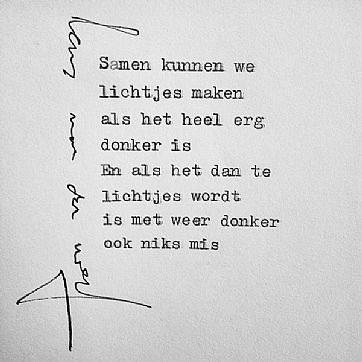 Samen kunnen we
lichtjes maken
als het heel erg
donker is
En als het dan te
lichtjes wordt
is met weer donker
ook niks mis